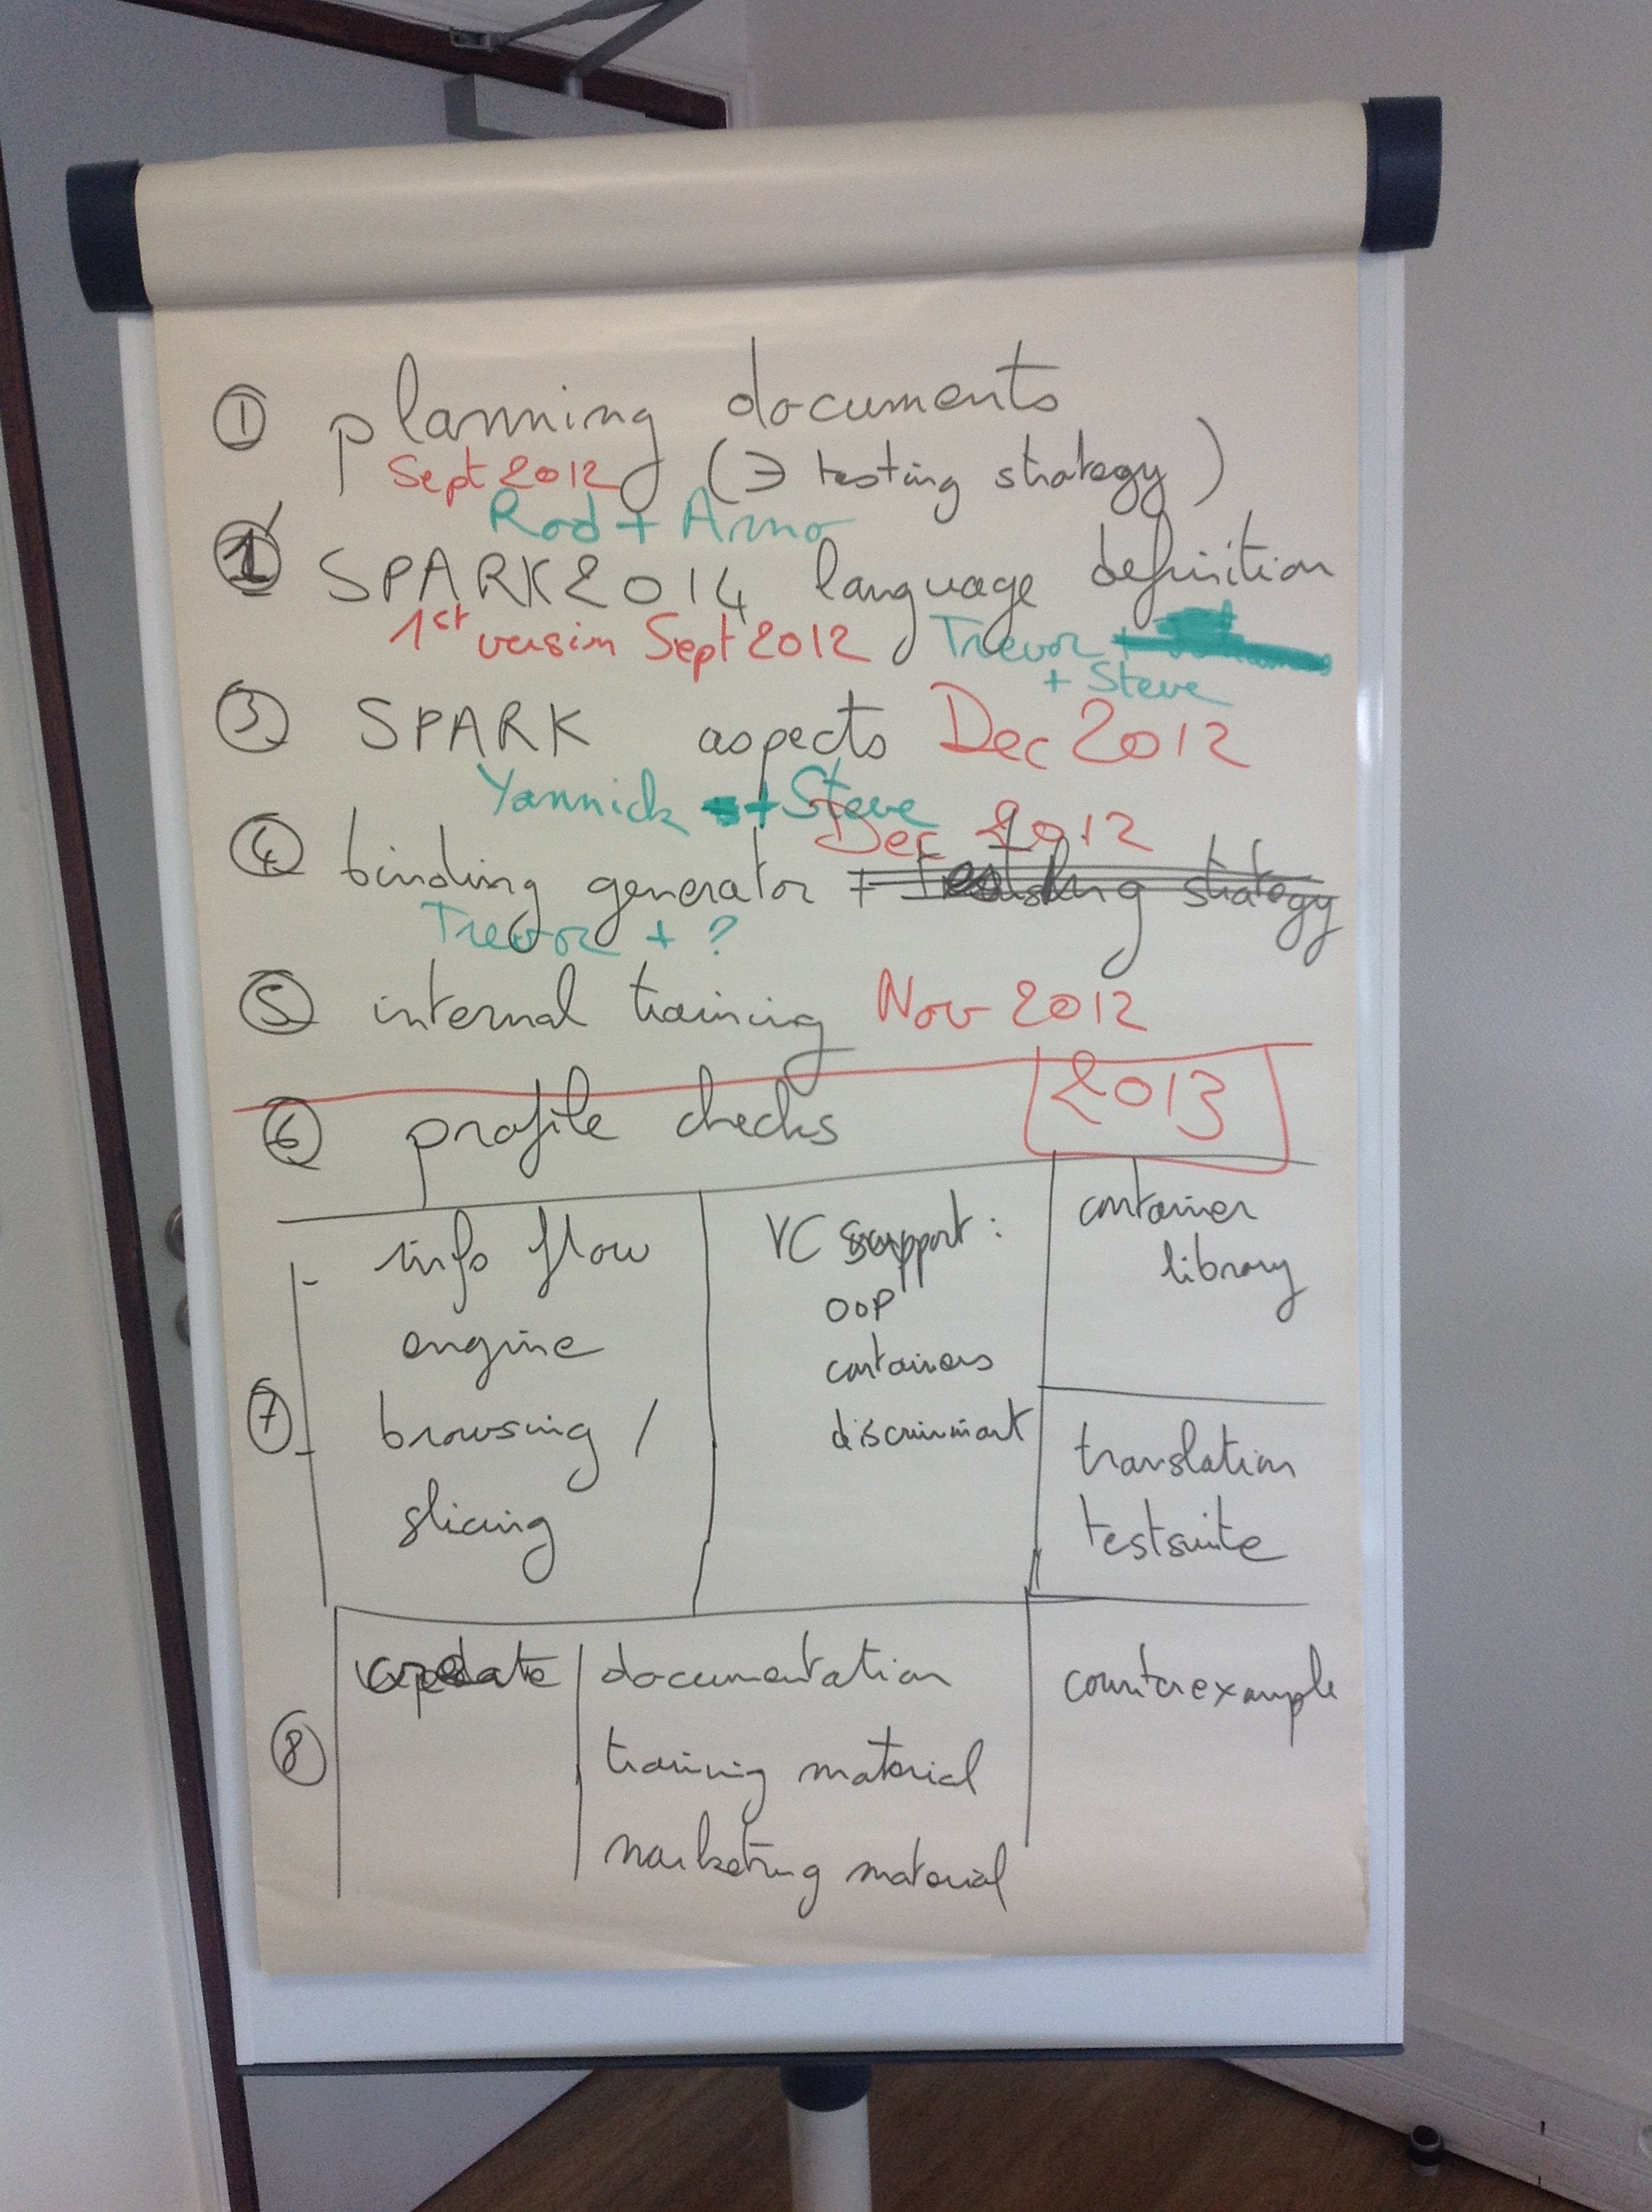 ① planning documents
Sept 2012 (∋ testing strategy)
Rod + Arno
①' SPARK2014 language definition
1st version Sept 2012 Trevor
+ Steve
③ SPARK aspects Dec 2012
Yannick + Steve
Dec 2012
④ binding generator + testing strategy
Trevor + ?
⑤ internal training Nov 2012
2013
⑥ profile checks
⑦
info flow
engine
browsing /
slicing
VC support:
OOP
containers
discriminant
container
library
translation
testsuite
⑧
update
documentation
training material
marketing material
counterexample